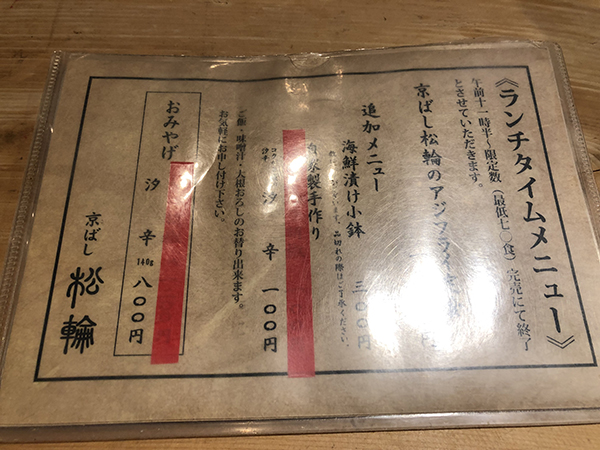 《ランチタイムメニュー》
午前十一時半～限定数(最低七〇食)完売にて終了
とさせていただきます。
京ばし松輪のアジフライ
円
追加メニュー
海鮮漬け小鉢 三〇〇円
品切れの際はご了承ください。
製手作り
汐辛 一〇〇円
ご飯・味噌汁・大根おろしのお替り出来ます。
お気軽にお申し付け下さい。
おみやげ
汐辛 140g 八〇〇円
京ばし 松輪